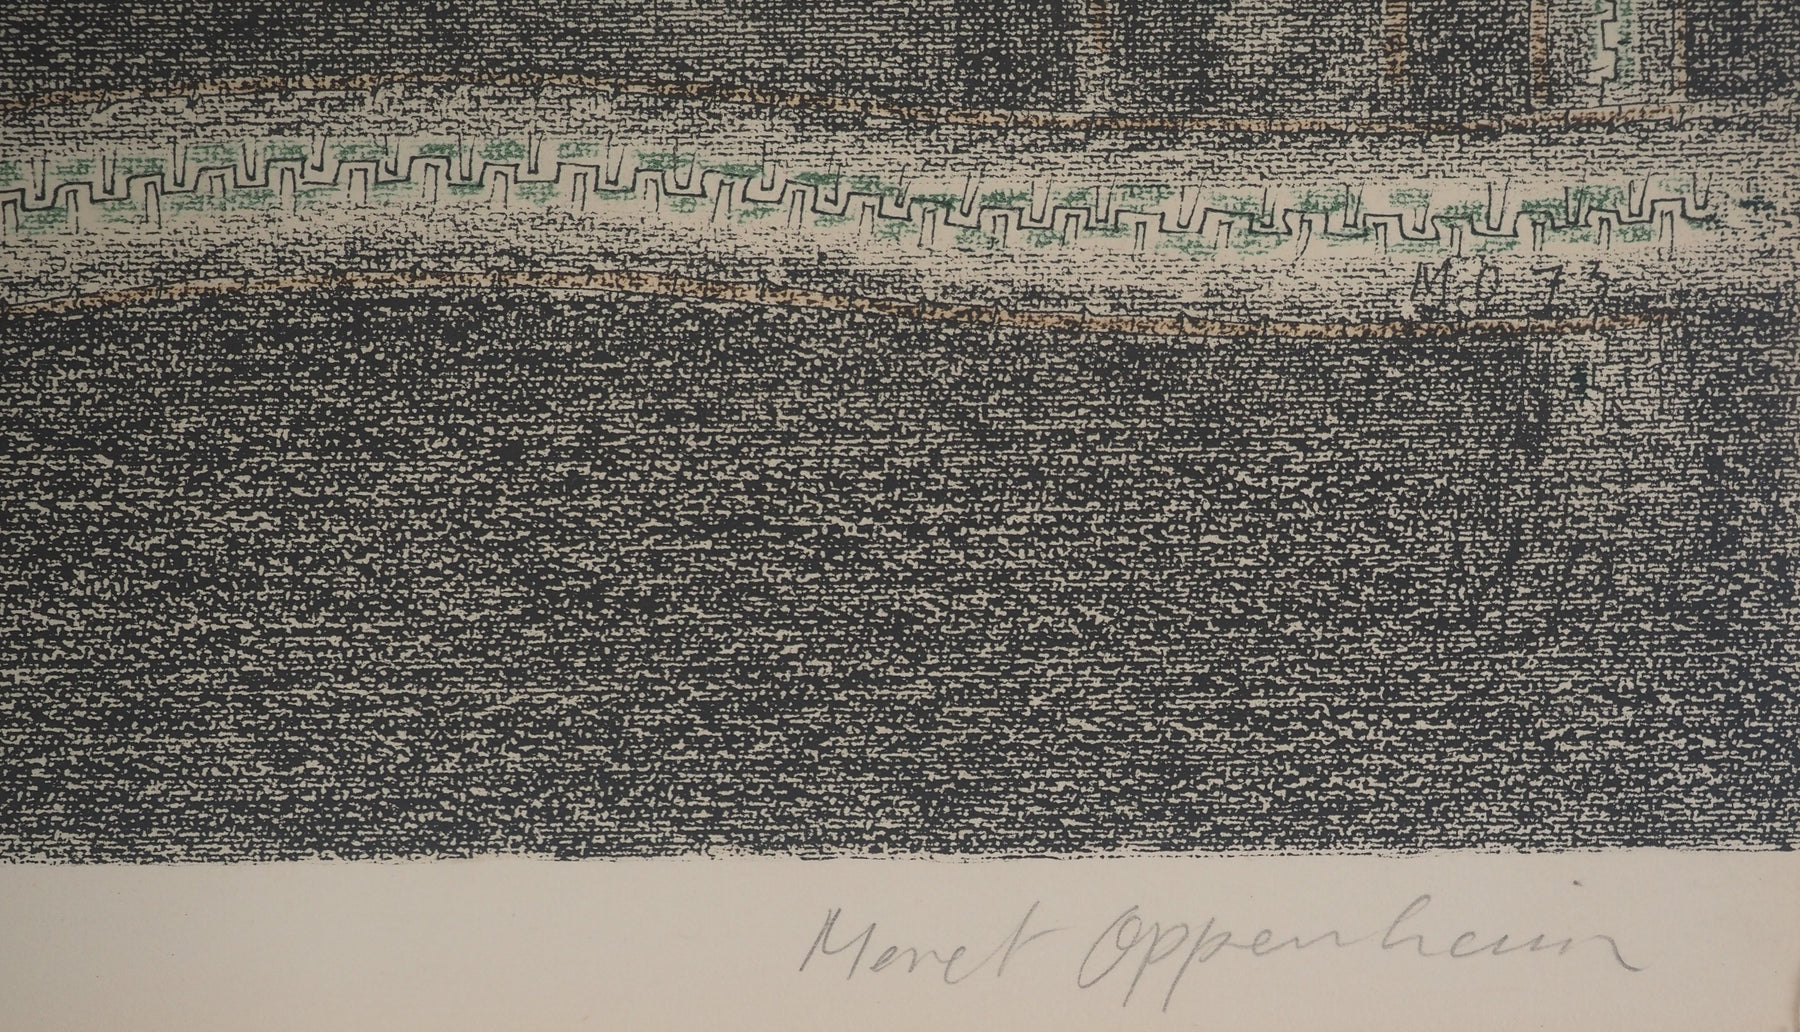 M.O 73
Meret Oppenheim